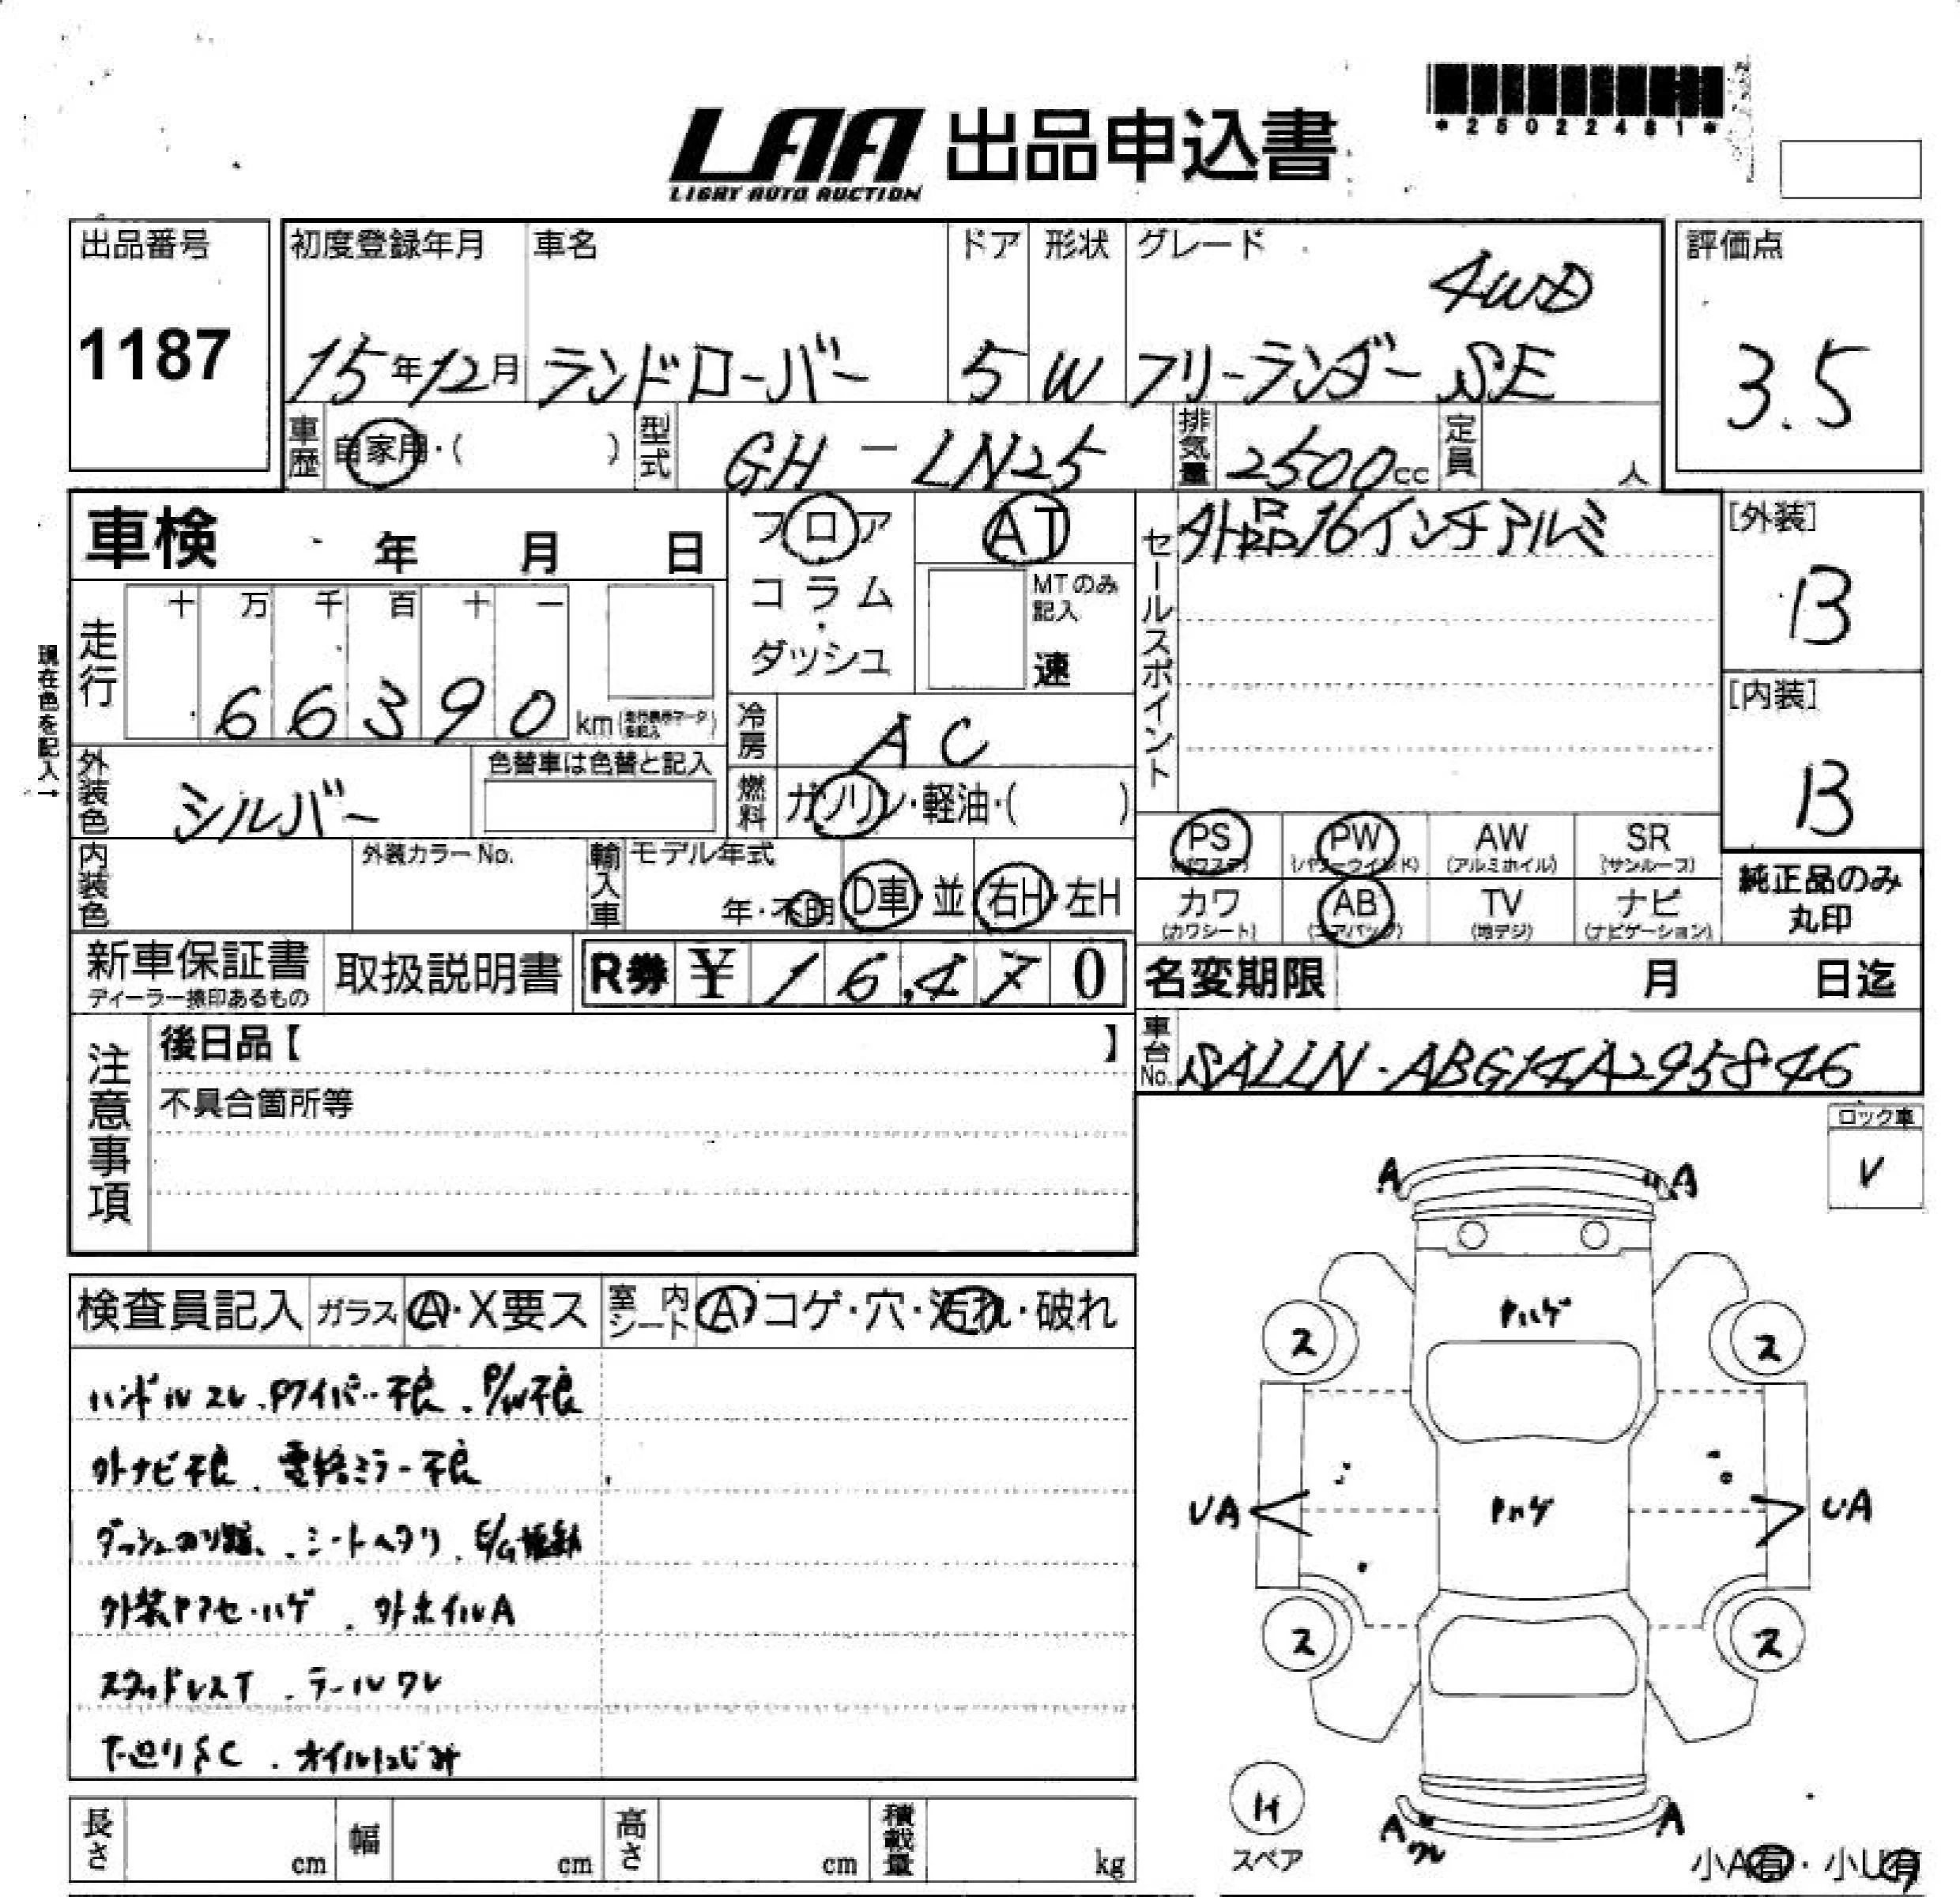 LAA 出品申込書
LIGHT AUTO AUCTION
*25022481*
出品番号
1187
初度登録年月
15年12月
車名
ランドローバー
ドア
5
形状
W
グレード
4WD
フリーランダー SE
評価点
3.5
車歴
自家用・( )
型式
GH - LN25
排気量
2500cc
定員
人
車検 年 月 日
フロア
コラム
・
ダッシュ
AT
MTのみ
記入
速
セールスポイント
外品16インチアルミ
[外装]
B
[内装]
B
現在色を記入→
走行
十 万 千 百 十 一
66390 km
冷房
AC
外装色
シルバー
色替車は色替と記入
燃料
ガソリン・軽油・( )
内装色
外装カラーNo.
輸入車
モデル年式
年・不明
D車・並
右H・左H
PS
(パワステ)
PW
(パワーウインド)
AW
(アルミホイル)
SR
(サンルーフ)
カワ
(カワシート)
AB
(エアバッグ)
TV
(地デジ)
ナビ
(ナビゲーション)
純正品のみ
丸印
新車保証書
ディーラー捺印あるもの
取扱説明書
R券 ¥16,470
名変期限 月 日迄
車台No.
SALLN-ABG14A295846
注意事項
後日品【 】
不具合箇所等
ロック車
V
検査員記入
ガラス
A・X要ス
室内
シート
A・コゲ・穴・汚れ・破れ
ハンドルスレ、Pワイパー不良、P/W不良
外ナビ不良、電格ミラー不良
シートヘタリ
外装Pアセ・ハゲ、外ホイルA
スタッドレスT、テールワレ
下廻りSC、オイルにじみ
A A
Pハゲ
ス ス
UA Pハゲ UA
ス ス
スペア
A ワレ A
小A有・小U有
長さ cm
幅 cm
高さ cm
積載量 kg